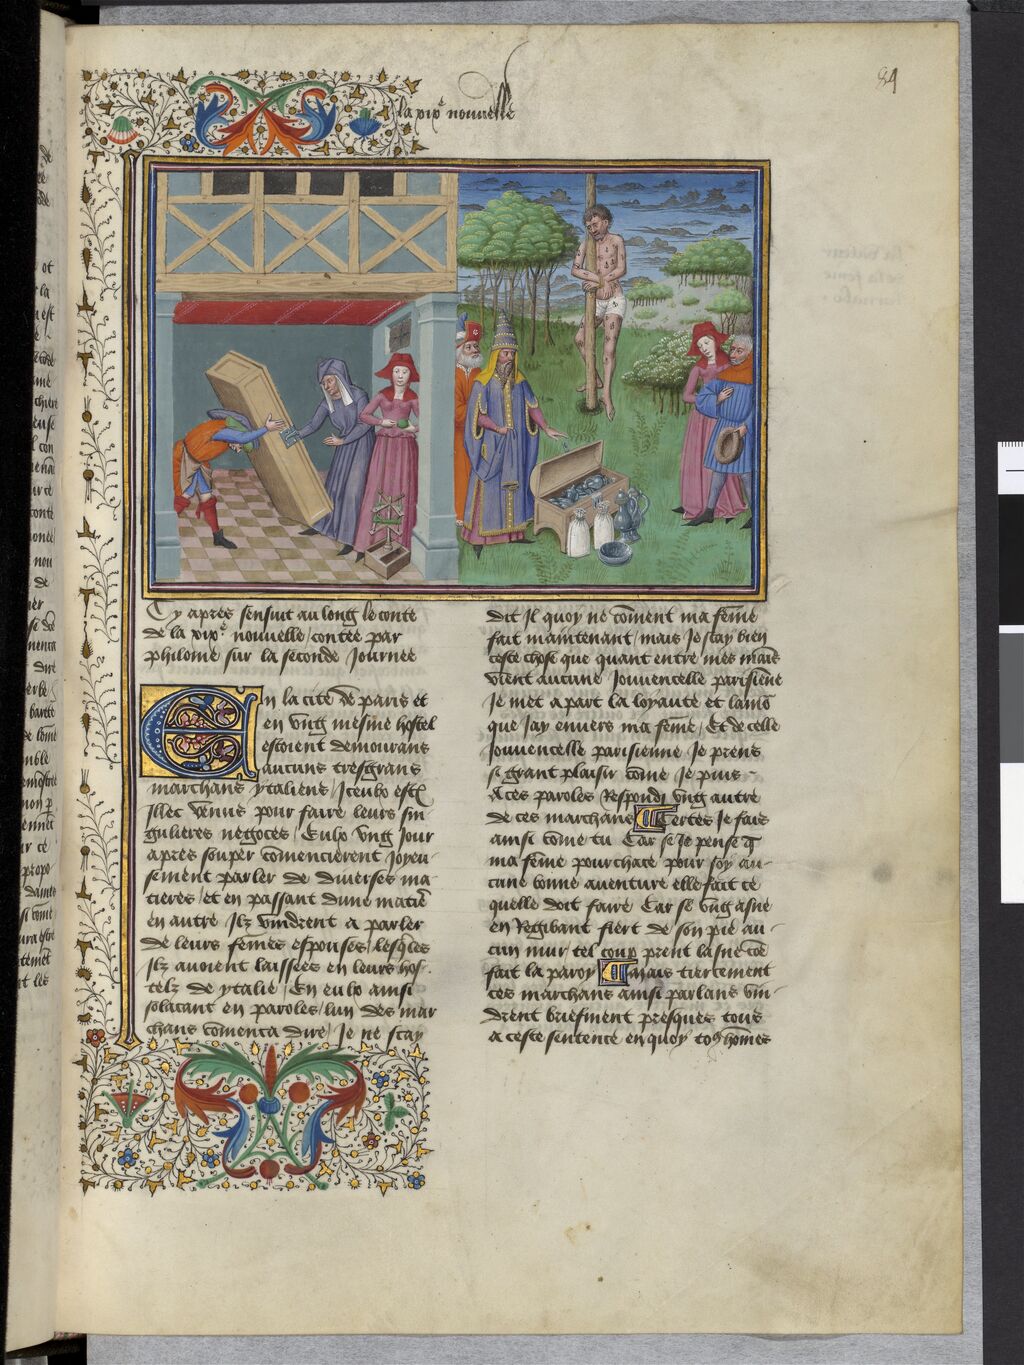 84
la xix^e nouuelle
Cy apres sensuit au long le conte
de la xix^e nouuelle / contee par
philome sur la seconde Journee
En la cite de paris et
en vng mesme hostel
estoient demourans
aucuns tresgrans
marchans ytaliens / Iceulx est
Illec venus pour faire leurs sin
gulieres negoces / Eulx vng Jour
apres souper comencierent Joyeu-
sement parler de diuerses ma-
tieres / et en passant dune matiẽ
en autre / Ilz vindrent a parler
de leurs femes espouses / lesq̃les
Ilz auoient laissees en leurs hos-
telz de ytalie / En eulx ainsi
solacant en paroles / lun des mar
chans comenca dire / Je ne scay
dit Il quoy ne cõment ma feme
fait maintenant / mais Je scay bien
ceste chose que quant entre mes mais
vient aucune Jouuencelle parisiene
Je met a part la loyaute et lamo
que Jay enuers ma feme / Et de celle
Jouuencelle parisienne Je prens
si grant plaisir cõme Je puis -
A ces paroles Respondi vng autre
de ces marchans / Certes Je fais
ainsi cõme tu Car se Je pense q̃
ma feme pourchace pour soy au-
cune bonne auenture elle fait ce
quelle doit faire Car se vng asne
en Regibant fiert de son pie au-
cun mur / tel coup prent lasne cõe
fait la paroy / Mais tiercement
ces marchans ainsi parlans vin-
drent briefment presques tous
a ceste sentence en quoy to9 hõmes